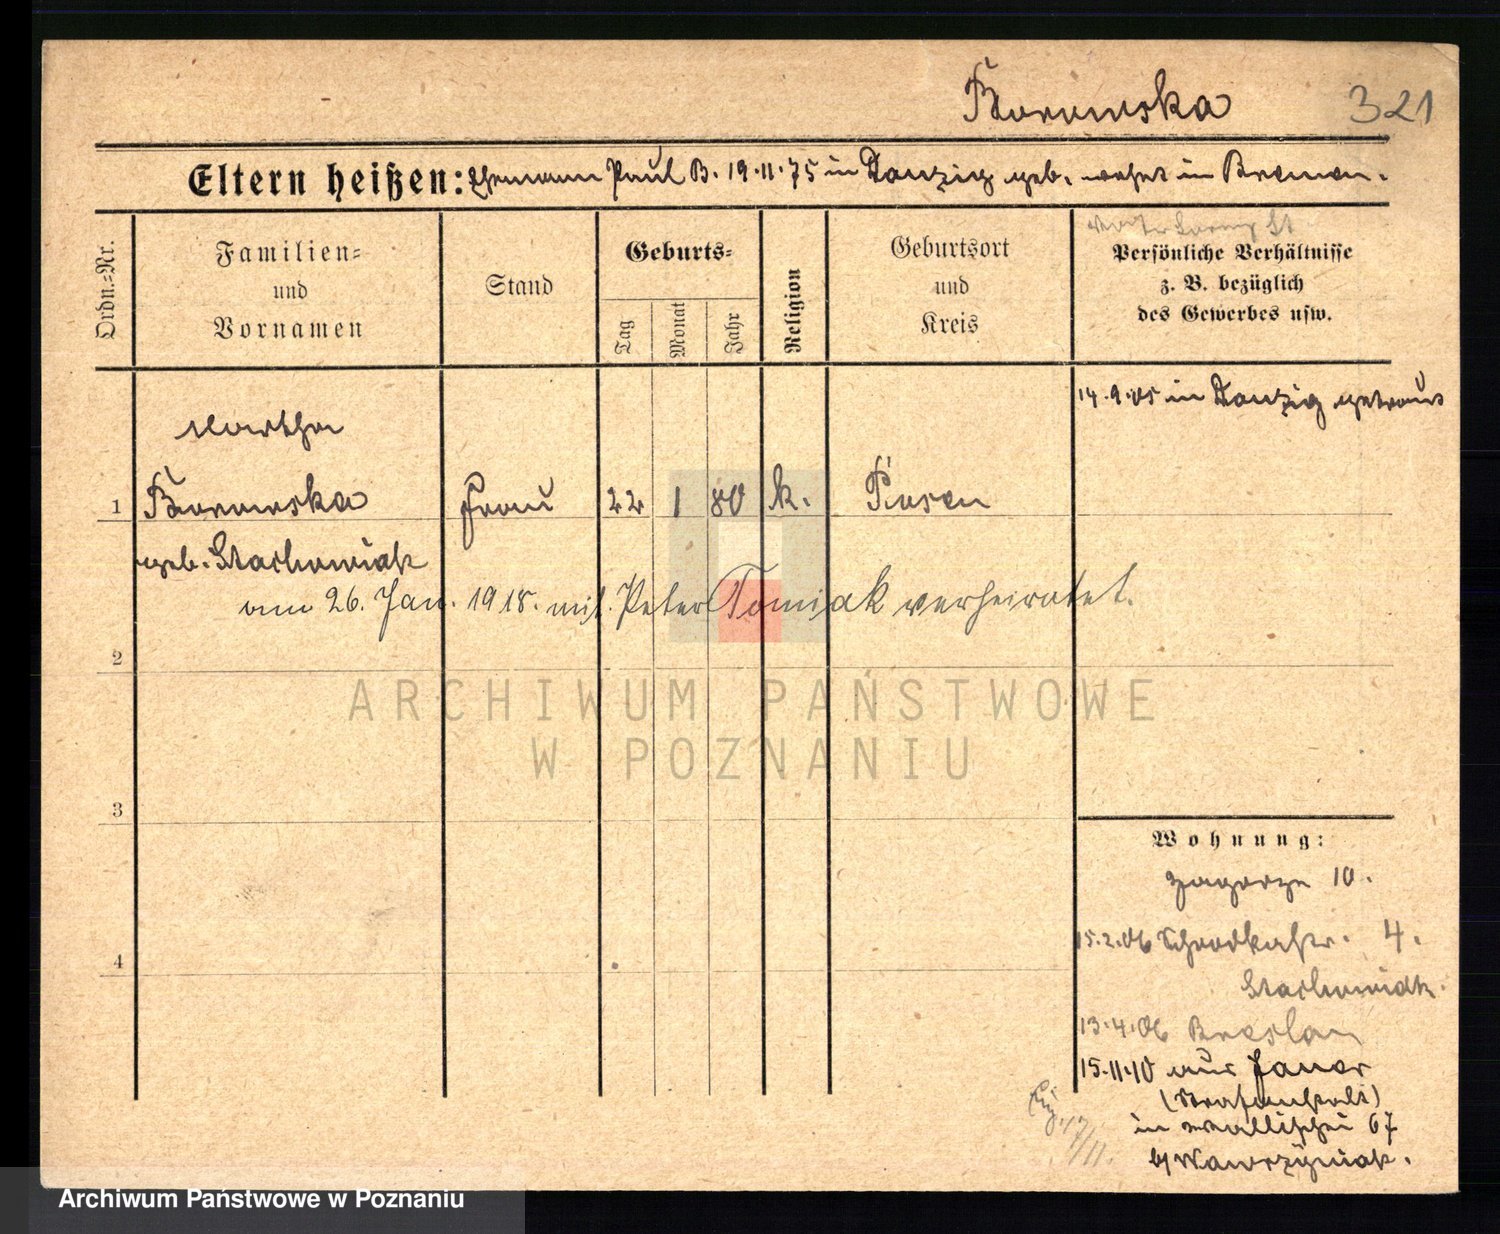 Borowska 321
Eltern heißen: Ehemann Paul B. 19.11.75 in Danzig geb. wohnt in Bremen.
Ordn.-Nr.
Familien-
und
Vornamen
Stand
Geburts-
Tag
Monat
Jahr
Religion
Geburtsort
und
Kreis
Persönliche Verhältnisse
z. B. bezüglich
des Gewerbes usw.
14.9.05 in Danzig getraut
Martha
1 Borowska Frau 22 1 80 k. Posen
geb. Stachowiak
am 26. Jan. 1918. mit. Peter Tomiak verheiratet.
2
ARCHIWUM PAŃSTWOWE
W POZNANIU
3
Wohnung:
Zagorze 10.
15.2.06 Schrodkastr. 4.
4
Stachowiak.
13.4.06 Breslau
15.11.10 aus Jauer
(Strafanstalt)
in Wallischei 67
b/ Wawrzyniak.
17/11.
Archiwum Państwowe w Poznaniu